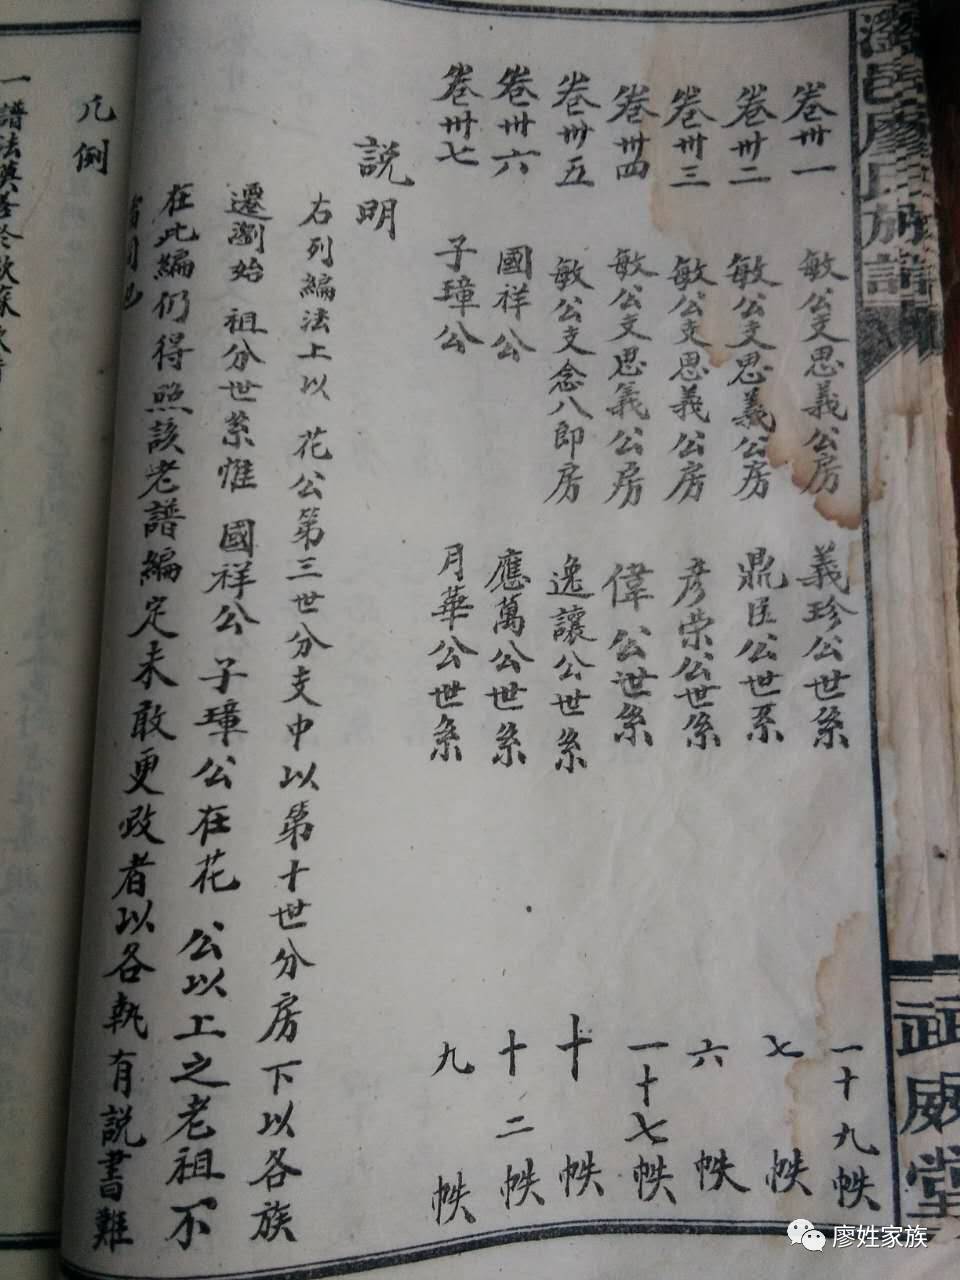 瀏邑廖氏族譜
武威堂
卷卅一 敏公支思義公房 義珍公世系 一十九帙
卷卅二 敏公支思義公房 鼎臣公世系 七帙
卷卅三 敏公支思義公房 彥榮公世系 六帙
卷卅四 敏公支思義公房 偉公世系 一十七帙
卷卅五 敏公支念八郎房 逸讓公世系 十帙
卷卅六 國祥公 應萬公世系 十二帙
卷卅七 子璋公 月華公世系 九帙
說明
右列編法上以 花公第三世分支中以第十世分房下以各族
遷瀏始 祖分世系惟 國祥公子璋公在花 公以上之老祖不
在此編仍得照該老譜編定未敢更改者以各執有說書難
凡例
一譜法莫善於歐蘇
廖姓家族